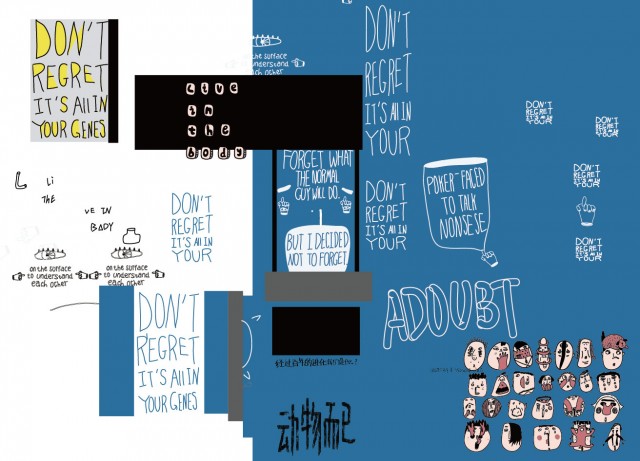 DON'T
REGRET
IT'S All IN
YOUR GENES
Live
in
the
body
on the surface
to understand
each other
DON'T
REGRET
IT'S All IN
YOUR
FORGET WHAT
THE NORMAL
GUY WILL DO.
BUT I DECIDED
NOT TO FORGET.
DON'T
REGRET
IT'S All IN
YOUR
POKER-FACED
TO TALK
NONSESE.
DON'T
REGRET
DON'T
REGRET
DON'T
REGRET
DON'T
REGRET
Li
THE
VE IN
BADY
DON'T
REGRET
IT'S All IN
YOUR
on the surface
to understand
each other
on the surface
to understand
each other
DON'T
REGRET
IT'S All IN
YOUR GENES
ADOUBT
动物而已